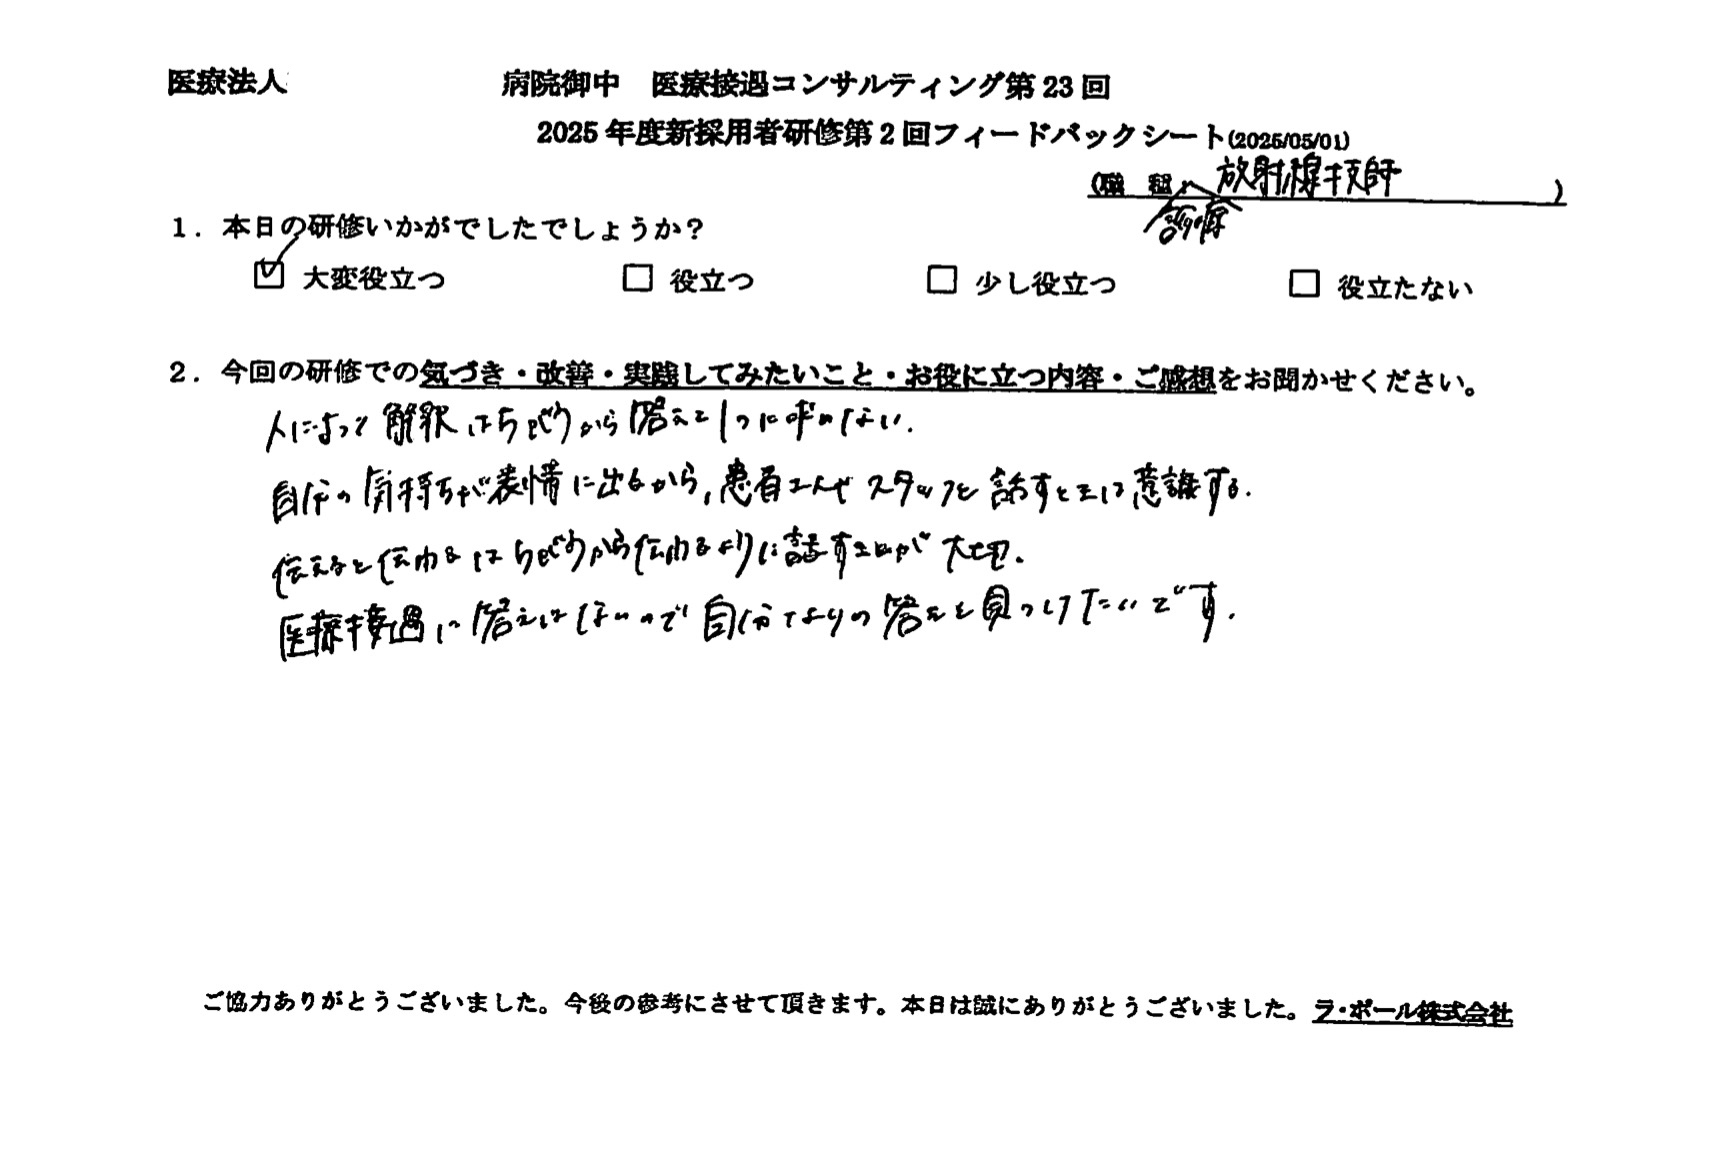 医療法人 病院御中 医療接遇コンサルティング第23回
2025年度新採用者研修第2回フィードバックシート(2025/05/01)
(職 種: 放射線技師 )
診療
1. 本日の研修いかがでしたでしょうか?
☑ 大変役立つ □ 役立つ □ 少し役立つ □ 役立たない
2. 今回の研修での気づき・改善・実践してみたいこと・お役に立つ内容・ご感想をお聞かせください。
人によって解釈はちがうから答えを1つに求めない.
自分の気持ちが表情に出るから,患者さんやスタッフと話すときは意識する.
伝えると伝わるはちがうから伝わるように話すことが大切.
医療接遇に答えはないので自分なりの答えを見つけたいです.
ご協力ありがとうございました。今後の参考にさせて頂きます。本日は誠にありがとうございました。ラ・ポール株式会社